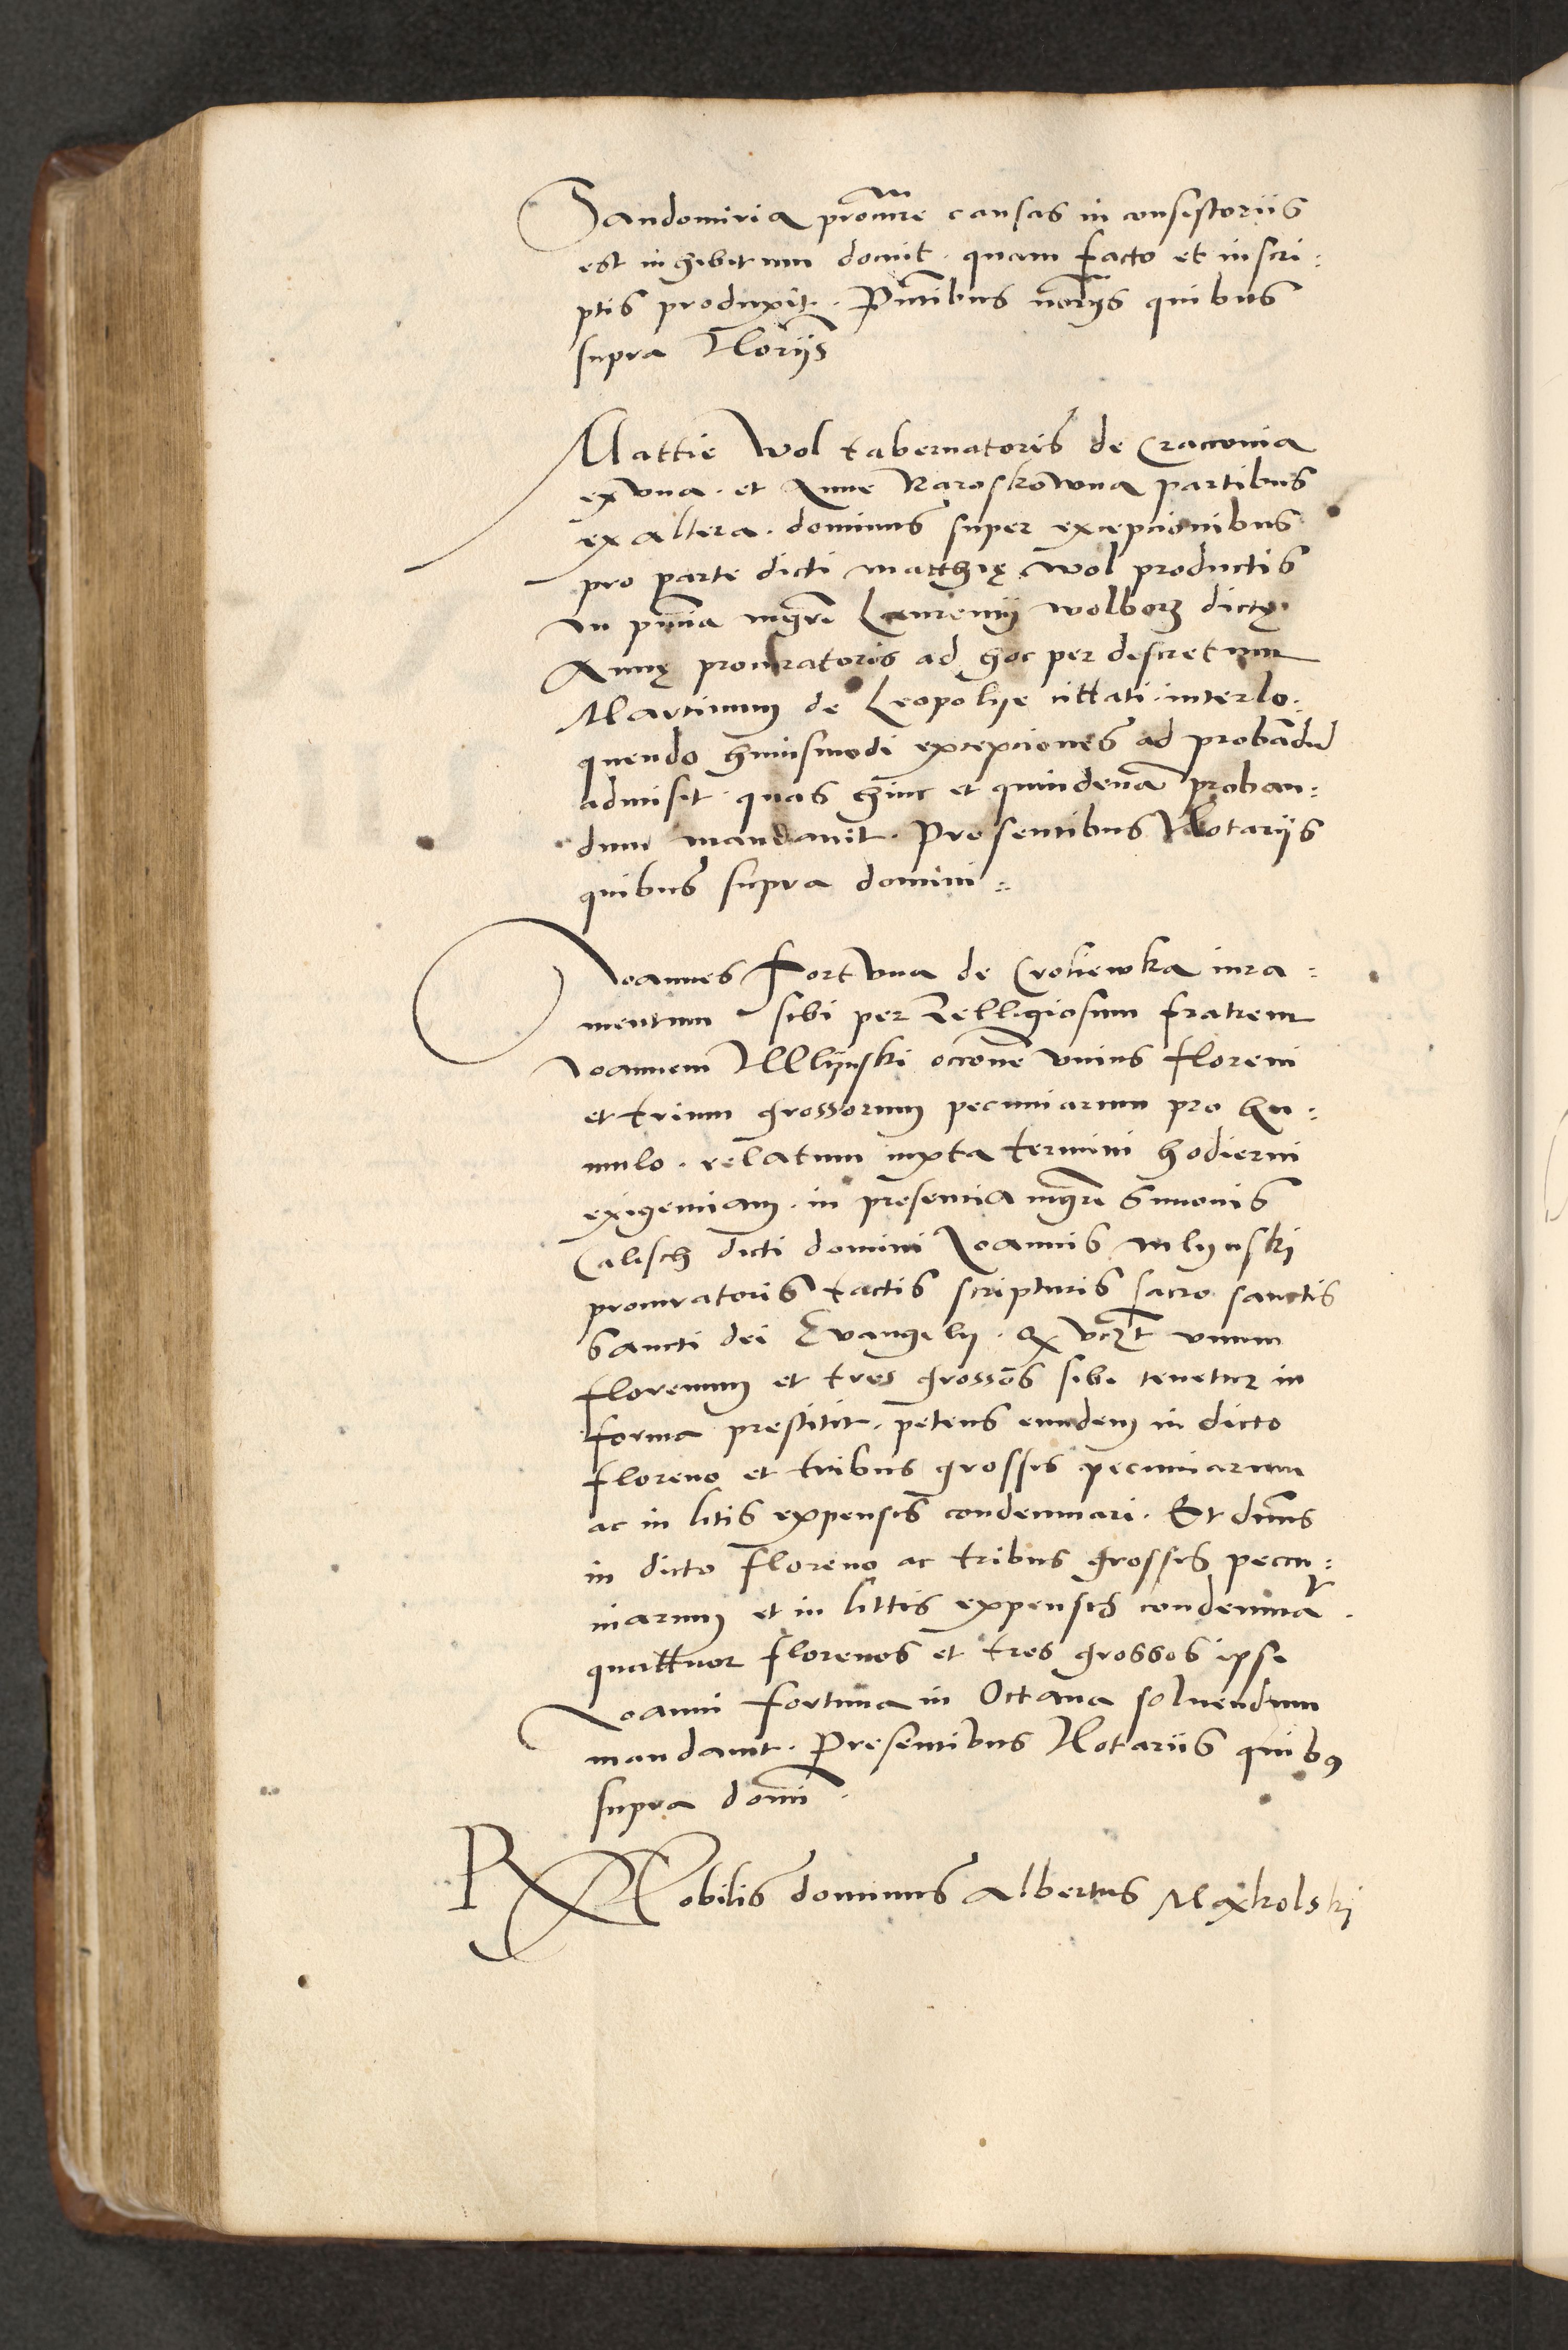 Sandomiria procurare causas in consistoriis
est inhibitum docuit. quam facto et inscri:
ptis produxit. Pntibus notrijs quibus
supra Norijs
Mattie Wol tabernatoris de Cracovia
ex vna. et Anne Naroskowna partibus
ex altera. dominus super excepcionibus
pro parte dicti matthię Wol productis
In pntia mgri Laurentij wolborz dictę
Annę procuratoris ad hoc per descretum
Martinum de Leopolije cittati. interlo:
quendo huiusmodi excepciones ad probandu
admisit. quas hinc et quindena proban:
dum mandauit. Presentibus Notarijs
quibus supra domini:
Joannes Fortuna de Crokiewka iura:
mentum sibi per Relligiosum fratrem
Joannem Mlijnski occone vnius floreni
et trium grossorum pecuniarum pro hu:
mulo. relatum iuxta termini hodierni
exigentiam. in presentia mgri Simonis
Calisch dicti domini Joannis mlynskj
procuratoris tactis scripturis sacro sanctis
Sancti dei Evangelij. Q vczt vnum
florenum et tres grossos sibi tenetur in
forma prestitit. petens eundem in dicto
floreno et tribus grossis pecuniarum
ac in litis expensis condemnari. Et dnus
in dicto floreno ac tribus grossis pecu:
niarum et in littis expensis condemnat.
quattuor florenos et tres grossos ipse
Joanni fortuna in Octaua soluendum
mandauit. Presentibus Notariis quibq
supra domi.
R Nobilis dominus Albertus Mąkolskj